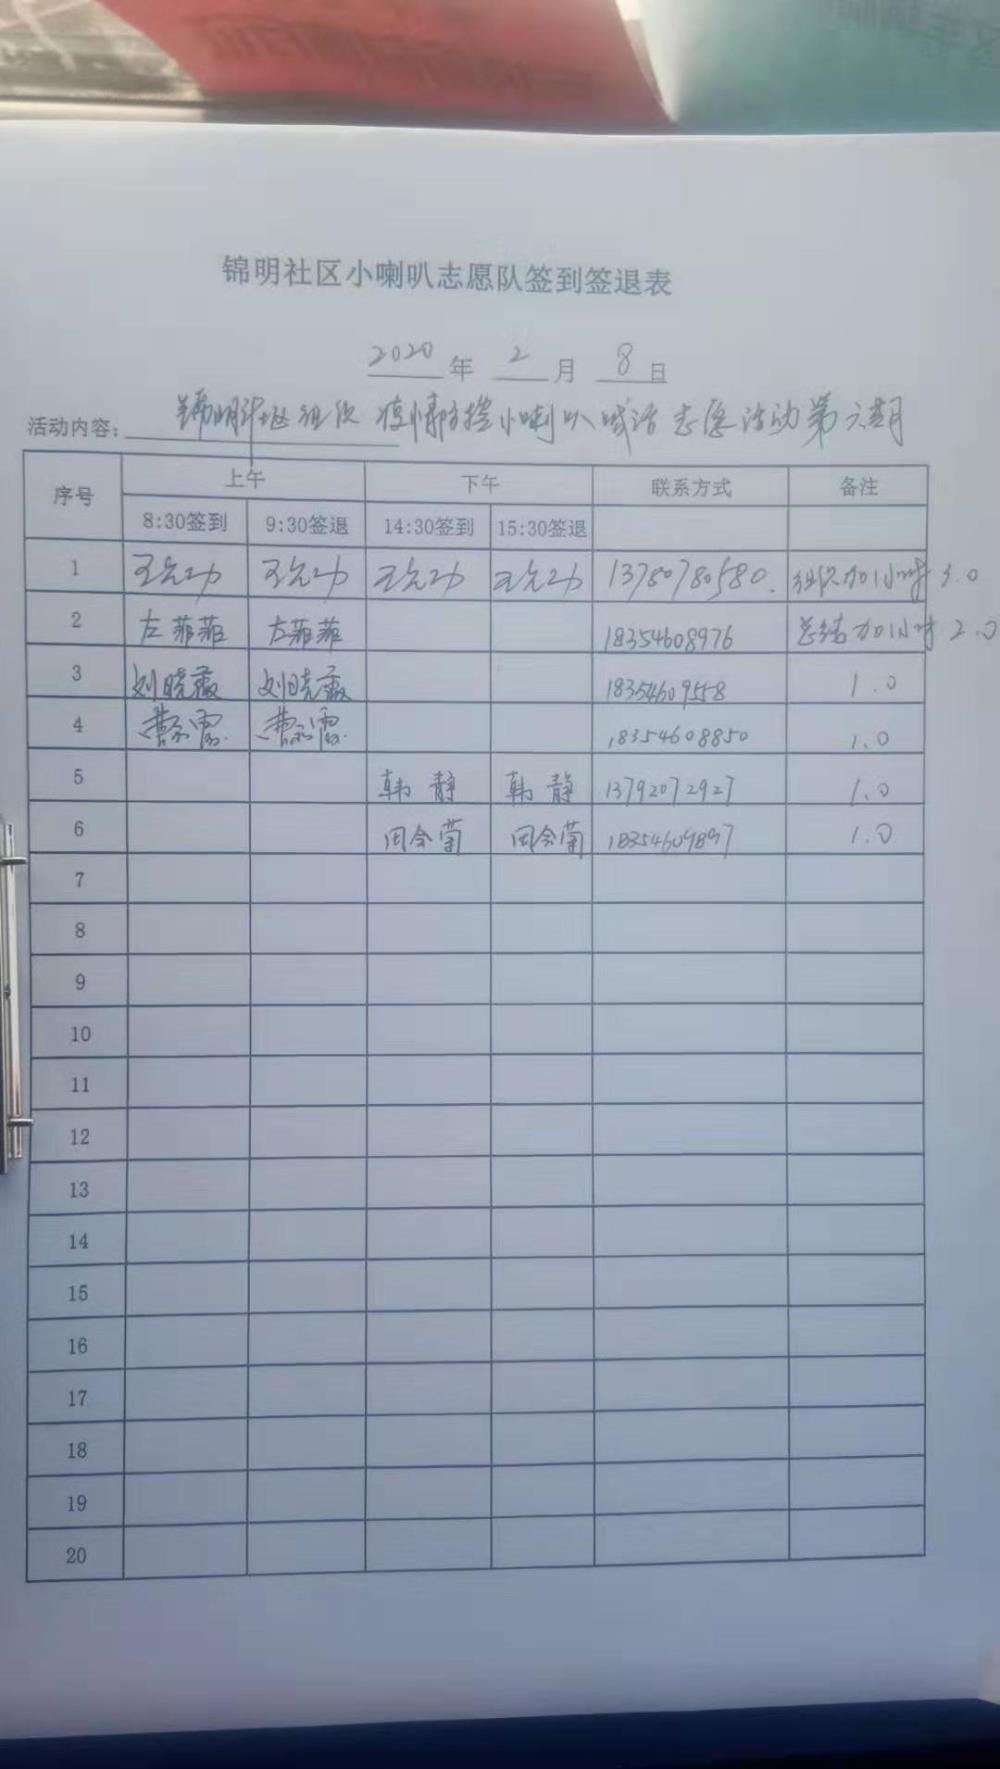 锦明社区小喇叭志愿队签到签退表
2020年 2月 8日
活动内容: 锦明社区组织疫情防控小喇叭喊话志愿活动第六期
序号 上午 下午 联系方式 备注
8:30签到 9:30签退 14:30签到 15:30签退
1 13780780580. 组织加1小时 3.0
2 左菲菲 左菲菲 18354608976 总结加1小时 2.0
3 刘晓薇 刘晓薇 18354609558 1.0
4 18354608850 1.0
5 韩静 韩静 13792072927 1.0
6 田会菊 田会菊 18354609897 1.0
7
8
9
10
11
12
13
14
15
16
17
18
19
20